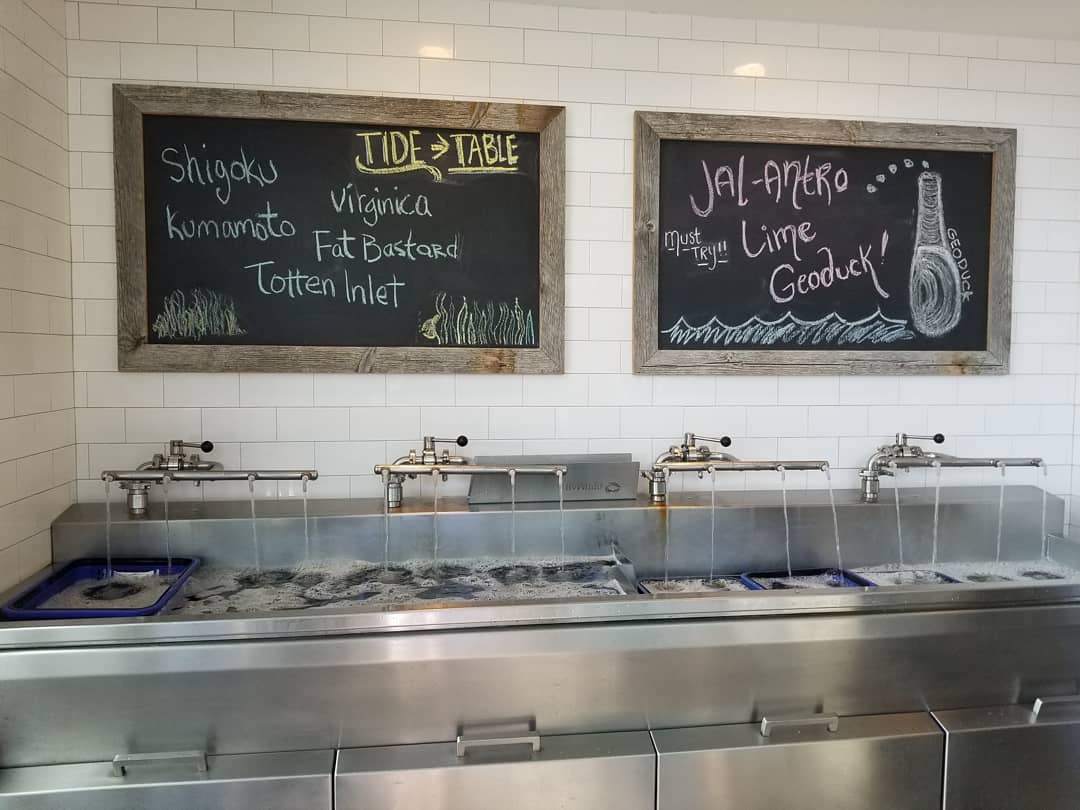 TIDE → TABLE
Shigoku
Virginica
Kumamoto
Fat Bastard
Totten Inlet
JAL-ANtRO
Lime
Must
TRY!!
Geoduck!
GEODUCK